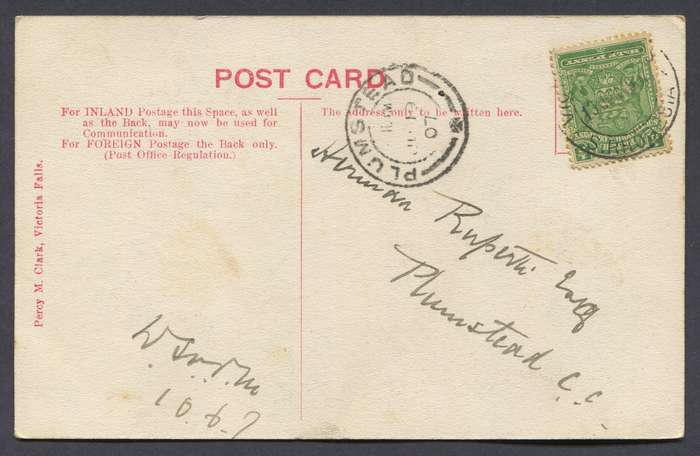 POST CARD
For INLAND Postage this Space, as well
as the Back, may now be used for
Communication.
For FOREIGN Postage the Back only.
(Post Office Regulation.)
The Address only to be written here.
Percy M. Clark, Victoria Falls.
PLUMSTEAD
07
HALF PENNY
Herman Ruperti Esq
Plumstead
C.C.
10.6.7